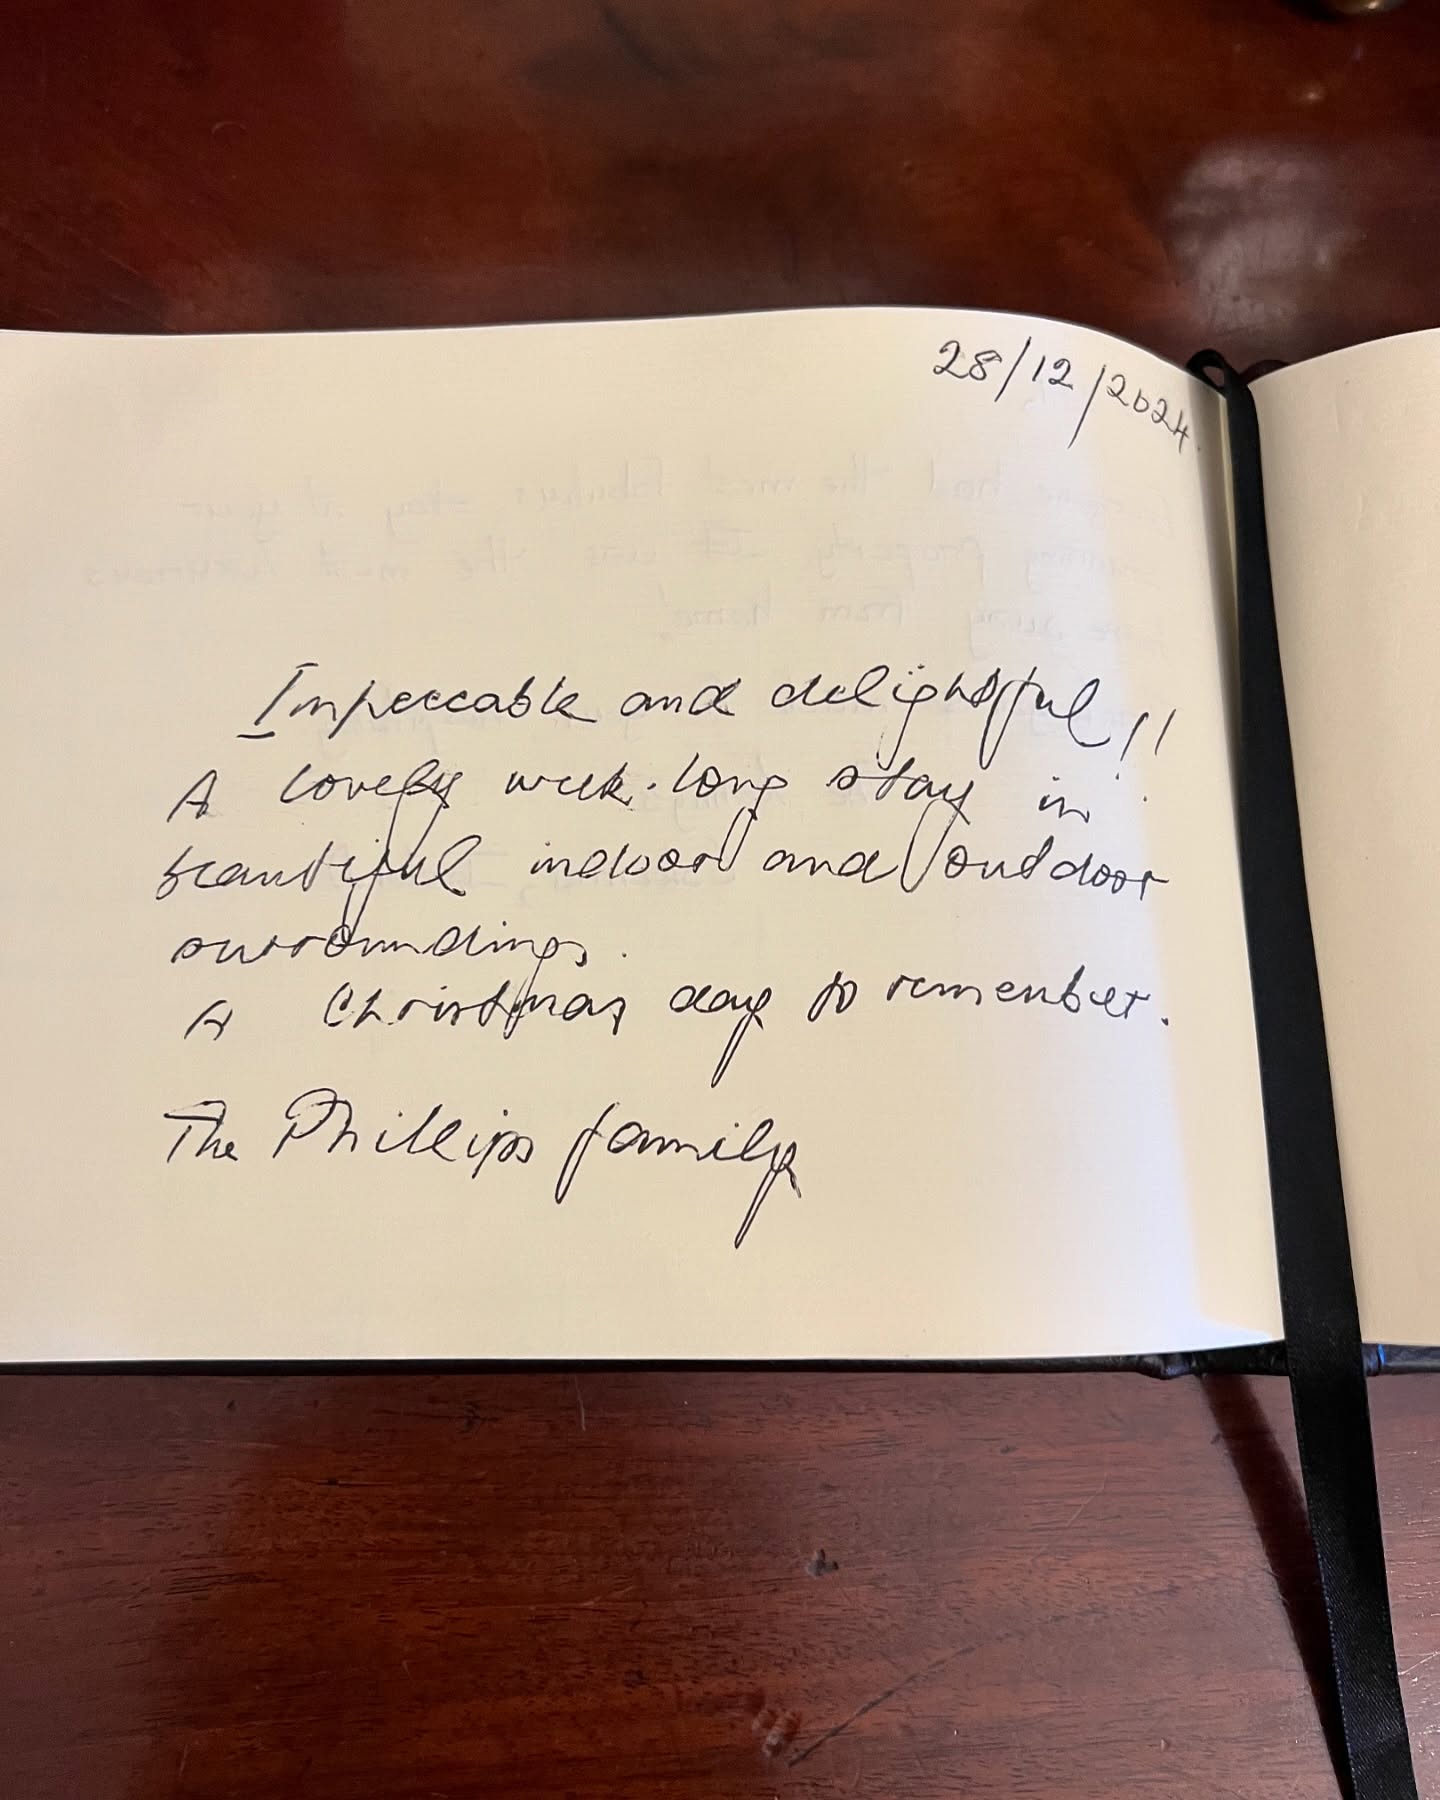 28/12/2024.
Impeccable and delightful!!
A lovely week-long stay in
beautiful indoor and outdoor
surroundings.
A Christmas day to remember.
The Phillips family